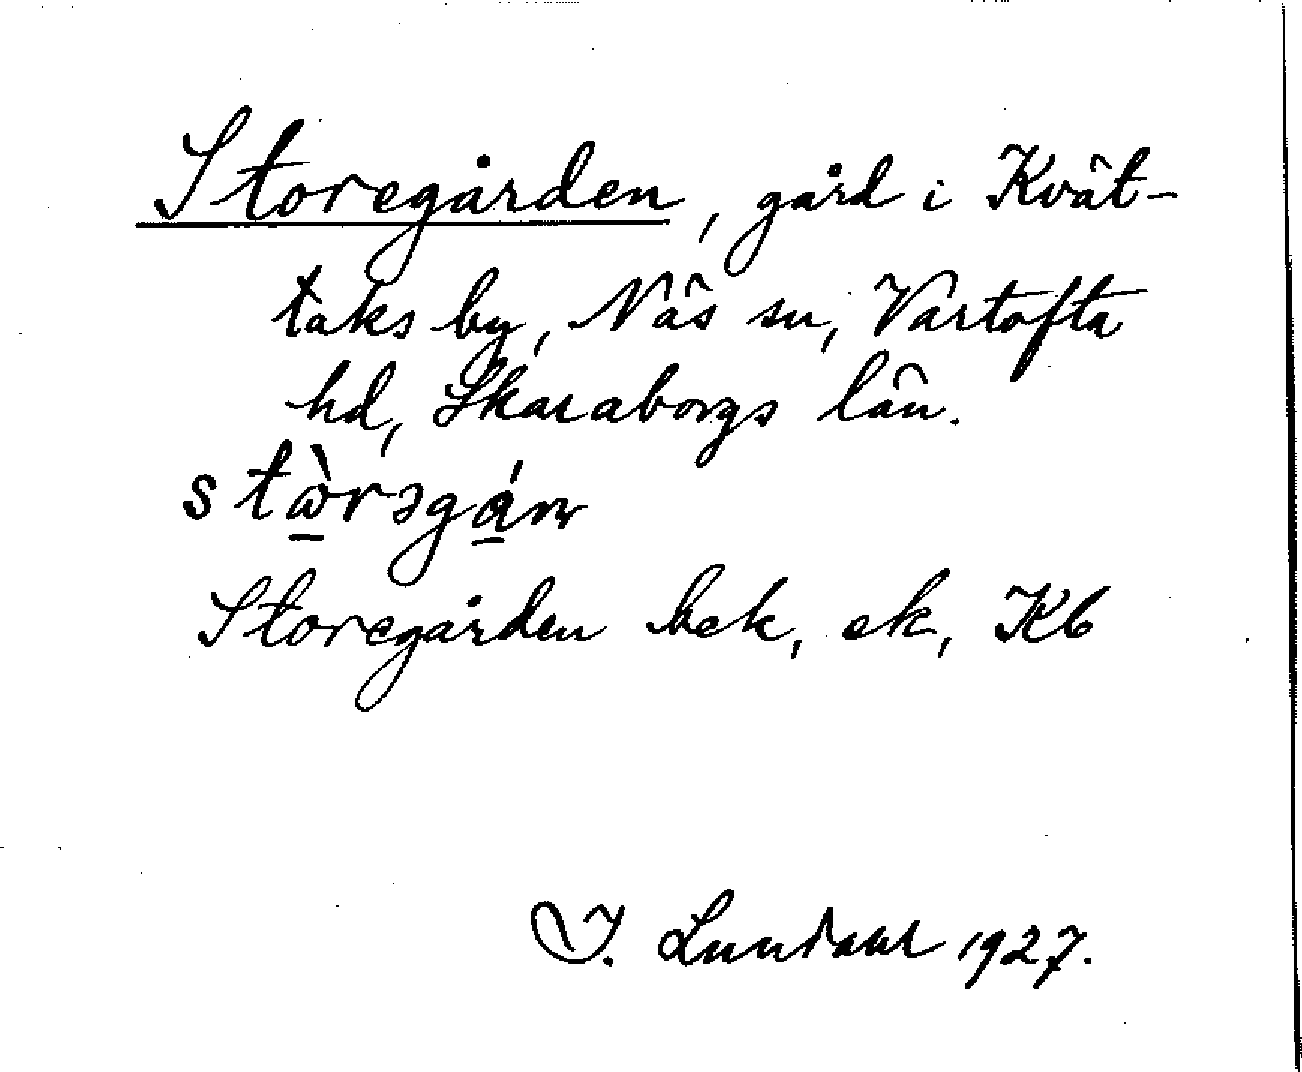 Storegården, gård i Kvät-
taks by, Näs sn, Vartofta
hd, Skaraborgs län.
stὼ̲rəgɑ̲́ɳ
Storegården bek, ek, Kb
I. Lundahl 1927.